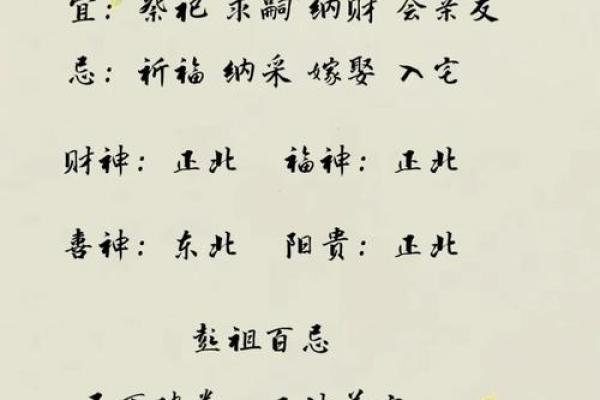 宜：祭祀 求嗣 纳财 会亲友
忌：祈福 纳采 嫁娶 入宅
财神：正北 福神：正北
喜神：东北 阳贵：正北
彭祖百忌